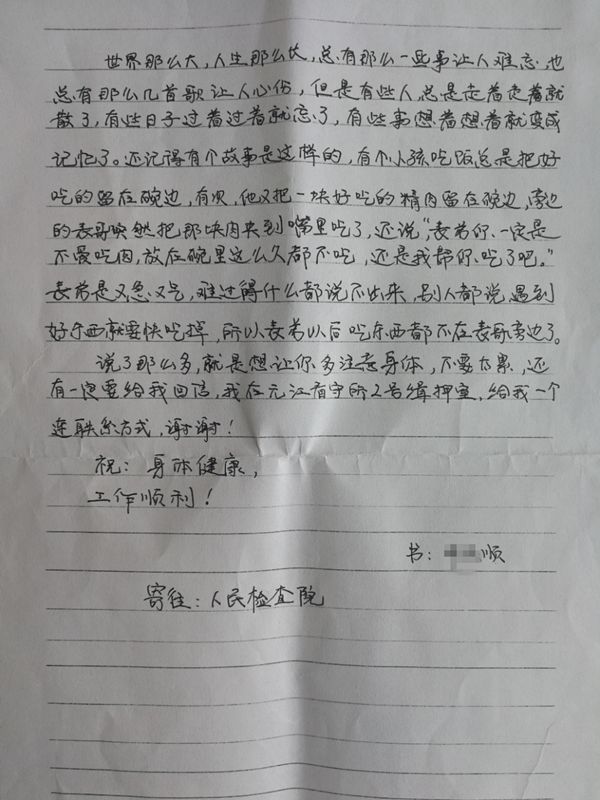 世界那么大，人生那么长，总有那么一些事让人难忘，也
总有那么几首歌让人心伤，但是有些人总是走着走着就
散了，有些日子过着过着就忘了，有些事想着想着就变成
记忆了。还记得有个故事是这样的，有个小孩吃饭总是把好
吃的留在碗边，有次，他又把一块好吃的精肉留在碗边，旁边
的表哥突然把那块肉夹到嘴里吃了，还说“表弟你一定是
不爱吃肉，放在碗里这么久都不吃，还是我帮你吃了吧。”
表弟是又急又气，难过得什么都说不出来，别人都说，遇到
好东西就要快吃掉，所以表弟以后吃东西都不在表哥旁边了。
说了那么多，就是想让你多注意身体，不要太累，还
有一定要给我回信，我在元江看守所2号缉押室，给我一个
连联系方式，谢谢！
祝：身体健康，
工作顺利！
书：顺
寄往：人民检查院